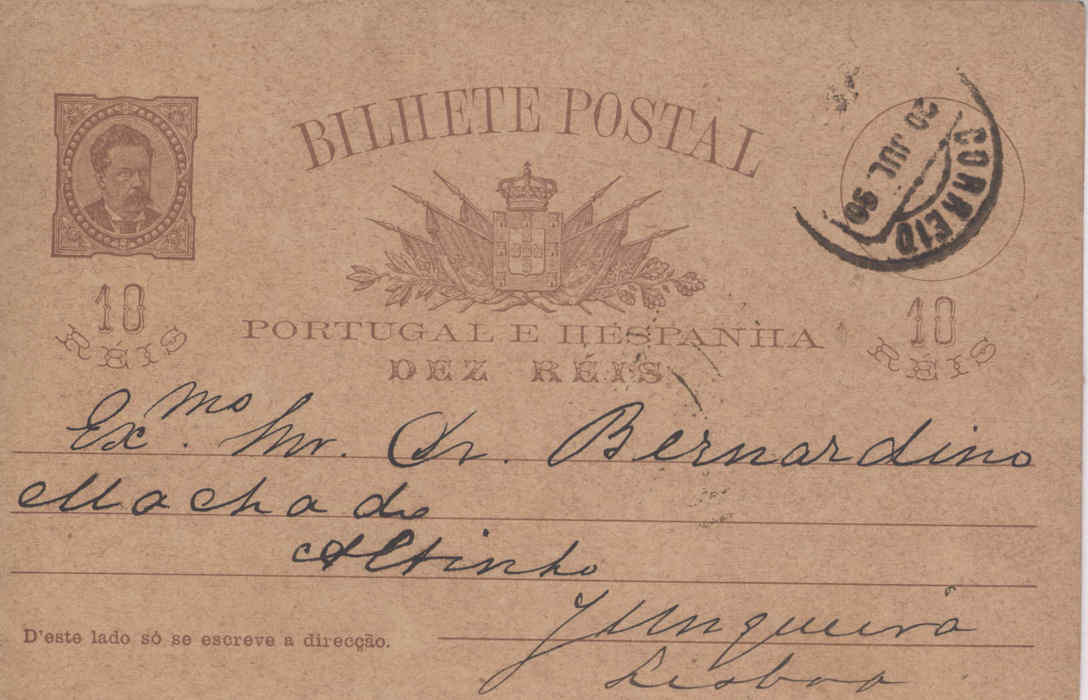 BILHETE POSTAL
CORREIO
20 JUL 90
10
RÉIS
PORTUGAL E HESPANHA
DEZ RÉIS
10
RÉIS
Ex.mo Snr. Dr. Bernardino
Machado
Altinho
Junqueira
D'este lado só se escreve a direcção.
Lisboa